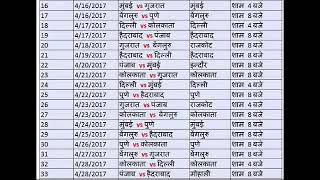 16 4/16/2017 मुंबई vs गुजरात मुंबई शाम 4 बजे
17 4/16/2017 बेंगलुरु vs पुणे बेंगलुरु शाम 8 बजे
18 4/17/2017 दिल्ली vs कोलकाता दिल्ली शाम 4 बजे
19 4/17/2017 हैदराबाद vs पंजाब हैदराबाद शाम 8 बजे
20 4/18/2017 गुजरात vs बेंगलुरु राजकोट शाम 8 बजे
21 4/19/2017 हैदराबाद vs दिल्ली हैदराबाद शाम 8 बजे
22 4/20/2017 पंजाब vs मुंबई इन्दौर शाम 8 बजे
23 4/21/2017 कोलकाता vs गुजरात कोलकाता शाम 8 बजे
24 4/22/2017 दिल्ली vs मुंबई मुंबई शाम 8 बजे
25 4/22/2017 पुणे vs हैदराबाद पुणे शाम 4 बजे
26 4/23/2017 गुजरात vs पंजाब राजकोट शाम 4 बजे
27 4/23/2017 कोलकाता vs बेंगलुरु कोलकाता शाम 8 बजे
28 4/24/2017 मुंबई vs पुणे मुंबई शाम 8 बजे
29 4/25/2017 बेंगलुरु vs हैदराबाद बेंगलुरु शाम 8 बजे
30 4/26/2017 पुणे vs कोलकाता पुणे शाम 8 बजे
31 4/27/2017 बेंगलुरु vs गुजरात बेंगलुरु शाम 8 बजे
32 4/28/2017 कोलकाता vs दिल्ली कोलकाता शाम 4 बजे
33 4/28/2017 पंजाब vs हैदराबाद मोहाली शाम 8 बजे